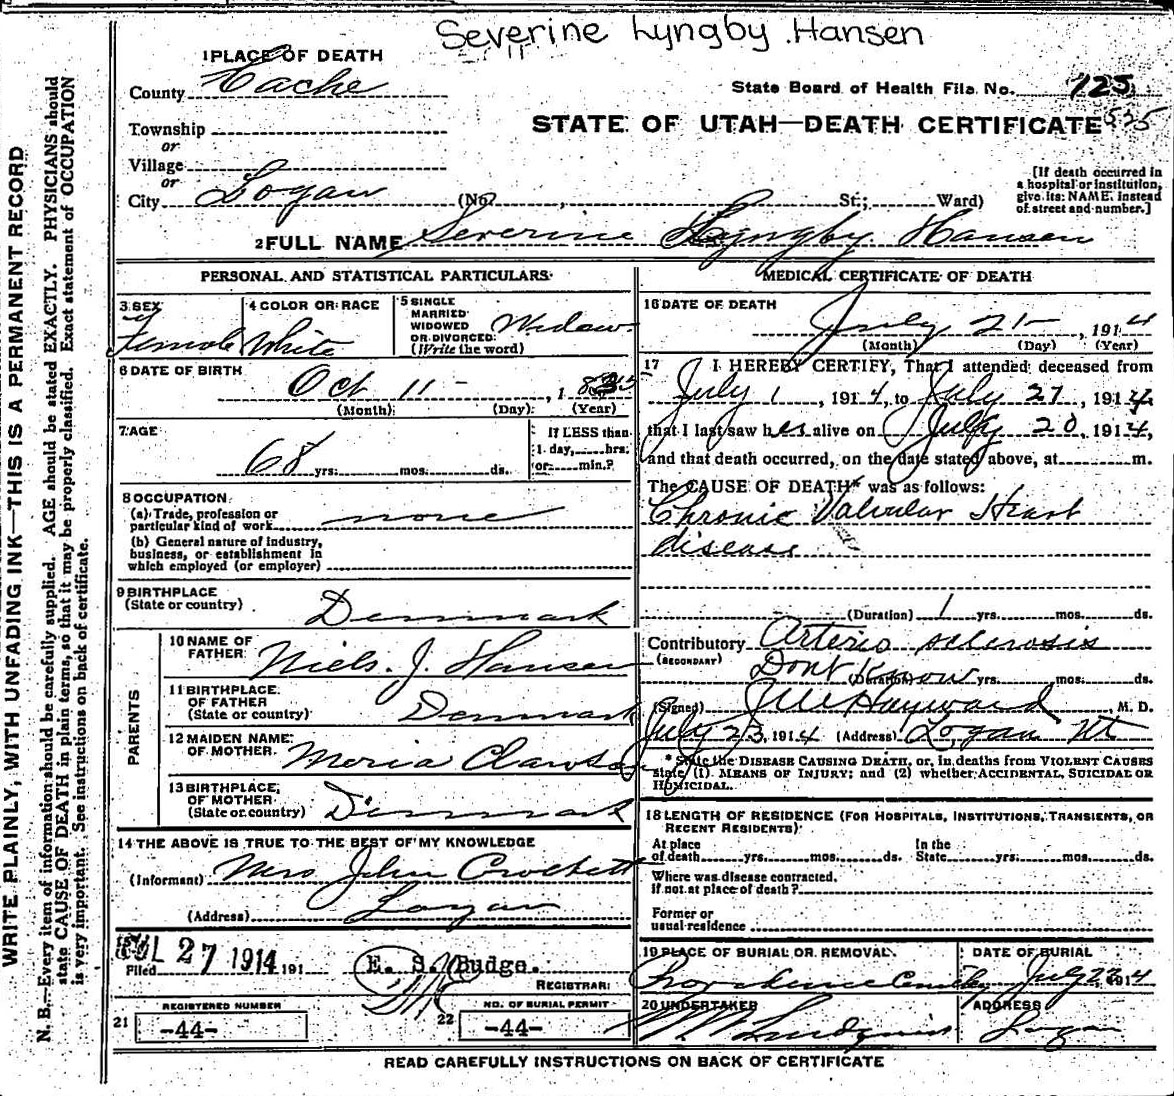 Severine Lyngby Hansen
1 PLACE OF DEATH
County Cache
State Board of Health File No. 125
535
Township
or
Village
or
City Logan (No. , St.; Ward)
STATE OF UTAH—DEATH CERTIFICATE
[If death occurred in
a hospital or institution,
give its NAME instead
of street and number.]
2 FULL NAME Severine Lyngby Hansen
PERSONAL AND STATISTICAL PARTICULARS
3 SEX
Female
4 COLOR OR RACE
White
5 SINGLE
MARRIED
WIDOWED
OR DIVORCED
(Write the word)
Widow
6 DATE OF BIRTH
Oct 11 - , 1
(Month) (Day) (Year)
7 AGE
68 yrs. mos. ds.
If LESS than
1 day, hrs.
or min.?
8 OCCUPATION
(a) Trade, profession or
particular kind of work none
(b) General nature of industry,
business, or establishment in
which employed (or employer)
9 BIRTHPLACE
(State or country) Denmark
PARENTS
10 NAME OF
FATHER Niels. J. Hansen
11 BIRTHPLACE
OF FATHER
(State or country) Denmark
12 MAIDEN NAME
OF MOTHER Moria Clawson
13 BIRTHPLACE
OF MOTHER
(State or country) Denmark
14 THE ABOVE IS TRUE TO THE BEST OF MY KNOWLEDGE
(Informant) Mrs John Crockett
(Address) Logan
JUL 27 1914
Filed 191
E. S. Budge.
REGISTRAR
REGISTERED NUMBER
21 -44-
NO. OF BURIAL PERMIT
22 -44-
MEDICAL CERTIFICATE OF DEATH
16 DATE OF DEATH
July 21- , 1914
(Month) (Day) (Year)
17 I HEREBY CERTIFY, That I attended deceased from
July 1 , 1914, to July 21, 1914,
that I last saw her alive on July 20, 1914,
and that death occurred, on the date stated above, at m.
The CAUSE OF DEATH* was as follows:
Chronic Valvular Heart
disease
(Duration) 1 yrs. mos. ds.
Contributory Arterio sclerosis
(SECONDARY)
Dont Know (Duration) yrs. mos. ds.
(Signed) Hayward, M. D.
July 23, 1914 (Address) Logan Ut
* State the DISEASE CAUSING DEATH, or, in deaths from VIOLENT CAUSES
state (1) MEANS OF INJURY; and (2) whether ACCIDENTAL, SUICIDAL OR
HOMICIDAL.
18 LENGTH OF RESIDENCE (FOR HOSPITALS, INSTITUTIONS, TRANSIENTS, OR
RECENT RESIDENTS)
At place
of death yrs. mos. ds.
In the
State yrs. mos. ds.
Where was disease contracted,
if not at place of death?
Former or
usual residence
19 PLACE OF BURIAL OR REMOVAL
Providence
DATE OF BURIAL
July 22 1914
20 UNDERTAKER
Lundquist
ADDRESS
Logan
READ CAREFULLY INSTRUCTIONS ON BACK OF CERTIFICATE
WRITE PLAINLY, WITH UNFADING INK—THIS IS A PERMANENT RECORD
N. B.—Every item of information should be carefully supplied. AGE should be stated EXACTLY. PHYSICIANS should
state CAUSE OF DEATH in plain terms, so that it may be properly classified. Exact statement of OCCUPATION
is very important. See instructions on back of certificate.